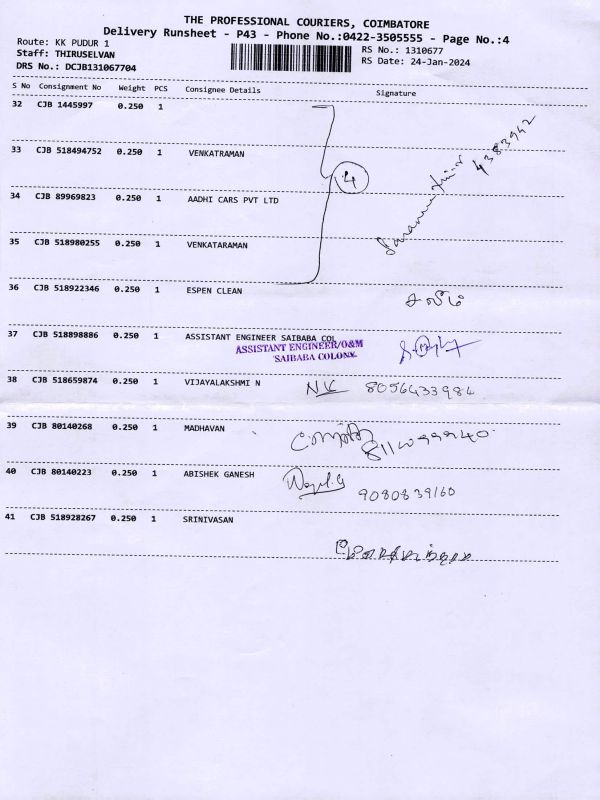 THE PROFESSIONAL COURIERS, COIMBATORE
Delivery Runsheet - P43 - Phone No.:0422-3505555 - Page No.:4
Route: KK PUDUR 1
RS No.: 1310677
Staff: THIRUSELVAN
RS Date: 24-Jan-2024
DRS No.: DCJB131067704
S No Consignment No Weight PCS Consignee Details Signature
32 CJB 1445997 0.250 1
33 CJB 518494752 0.250 1 VENKATRAMAN
4
34 CJB 89969823 0.250 1 AADHI CARS PVT LTD
35 CJB 518980255 0.250 1 VENKATARAMAN
36 CJB 518922346 0.250 1 ESPEN CLEAN
சலீம்
37 CJB 518898886 0.250 1 ASSISTANT ENGINEER SAIBABA COL
ASSISTANT ENGINEER/O&M
SAIBABA COLONY.
38 CJB 518659874 0.250 1 VIJAYALAKSHMI N
NK 8056433984
39 CJB 80140268 0.250 1 MADHAVAN
40 CJB 80140223 0.250 1 ABISHEK GANESH
9080839160
41 CJB 518928267 0.250 1 SRINIVASAN